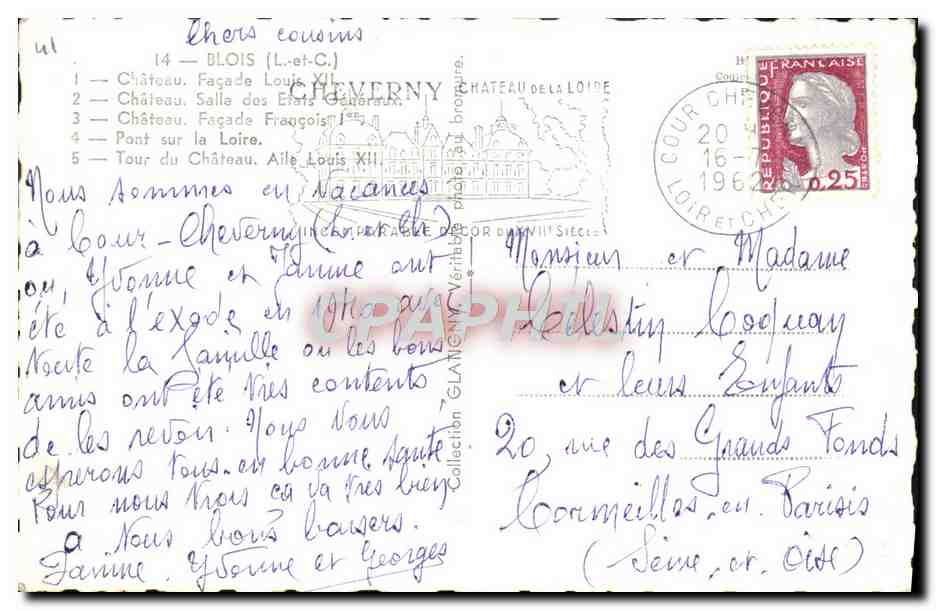 41
Chers cousins
14 — BLOIS (L.-et-C.)
1 — Château. Façade Louis XII.
2 — Château. Salle des Etats Généraux.
3 — Château. Façade François 1er.
4 — Pont sur la Loire.
5 — Tour du Château. Aile Louis XII.
CHEVERNY CHATEAU DE LA LOIRE
INCOMPARABLE DECOR DU XVIIe SIÈCLE
Nous sommes en vacances
à Cour-Cheverny (L. et Ch)
ou, Yvonne et Janine ont
été à l'exode en 1940 avec
toute la famille ou les bons
amis ont été très contents
de les revoir. Nous vous
esperons tous en bonne santé
Pour nous trois ça va très bien
a vous bons baisers.
Janine. Yvonne et Georges
Collection GLANGNY. Véritable photo au bromure.
COUR CHEVERNY
20 H
16-7
1962
LOIR ET CHER
REPUBLIQUE FRANÇAISE
0,25
DECARIS
CPAPHIL
Monsieur et Madame
Celestin Coquay
et leurs Enfants
20, rue des Grands Fonds
Cormeilles. en. Parisis
(Seine. et. Oise)